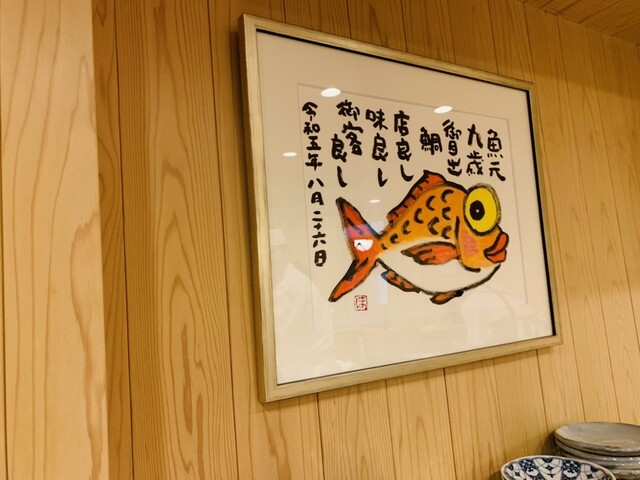 魚元
九歳
御目出
鯛
店良し
味良し
御客良し
令和五年八月二十六日